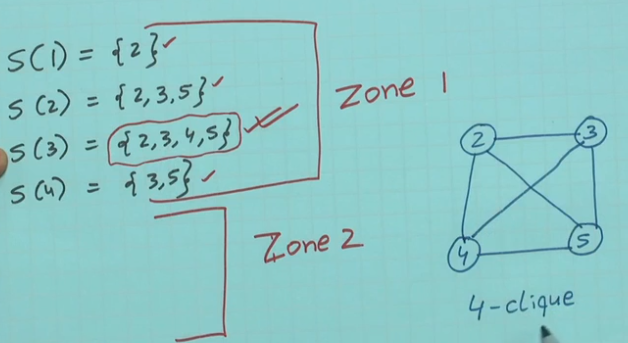 S(1) = {2} ✓
S(2) = {2,3,5} ✓
S(3) = {2,3,4,5} ✓
S(4) = {3,5} ✓
Zone 1
Zone 2
2
3
4
5
4-clique